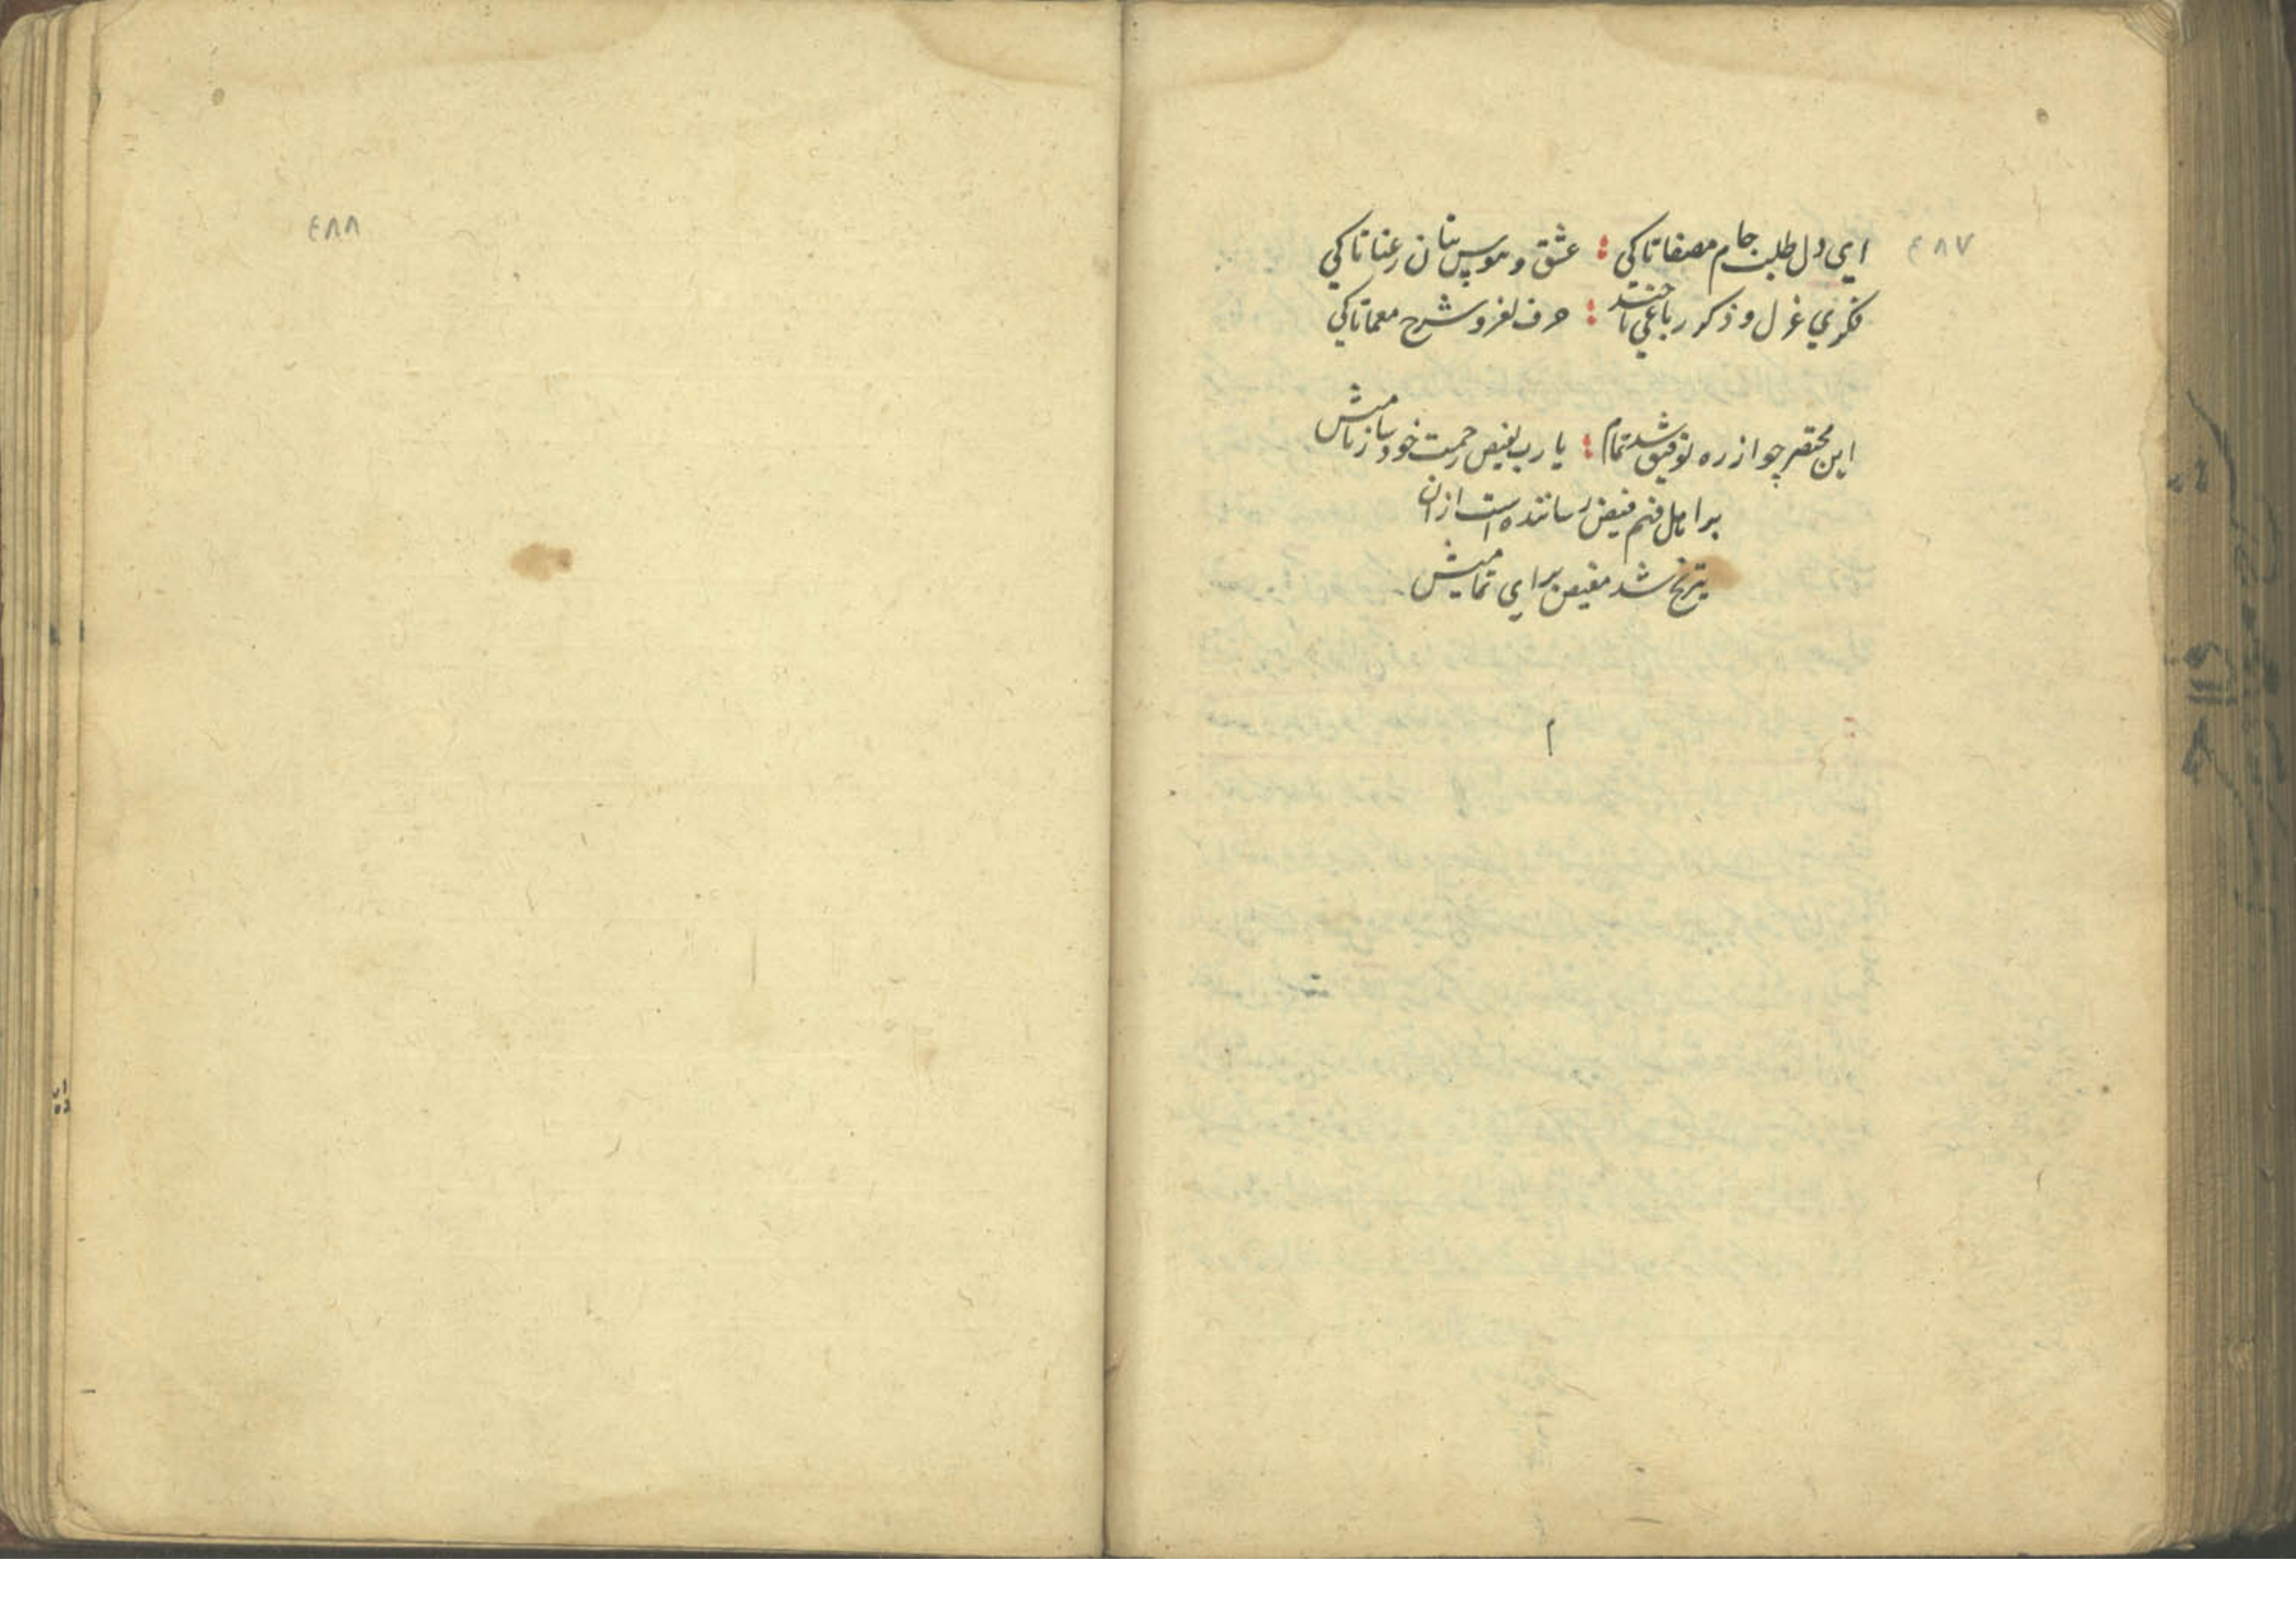 ٤٨٧
ای دل طلب جام مصفا تا کی ؛ عشق و هوس بتان رعنا تا کی
فکری غزل و ذکر رباعی تا چند ؛ حرف لغز و شرح معما تا کی
این مختصر چو از ره توفیق شد تمام ؛ یا رب بفیض رحمت خود
بر اهل فهم فیض رساننده است از آن
شد مفیض برای تمامیش
م
٤٨٨